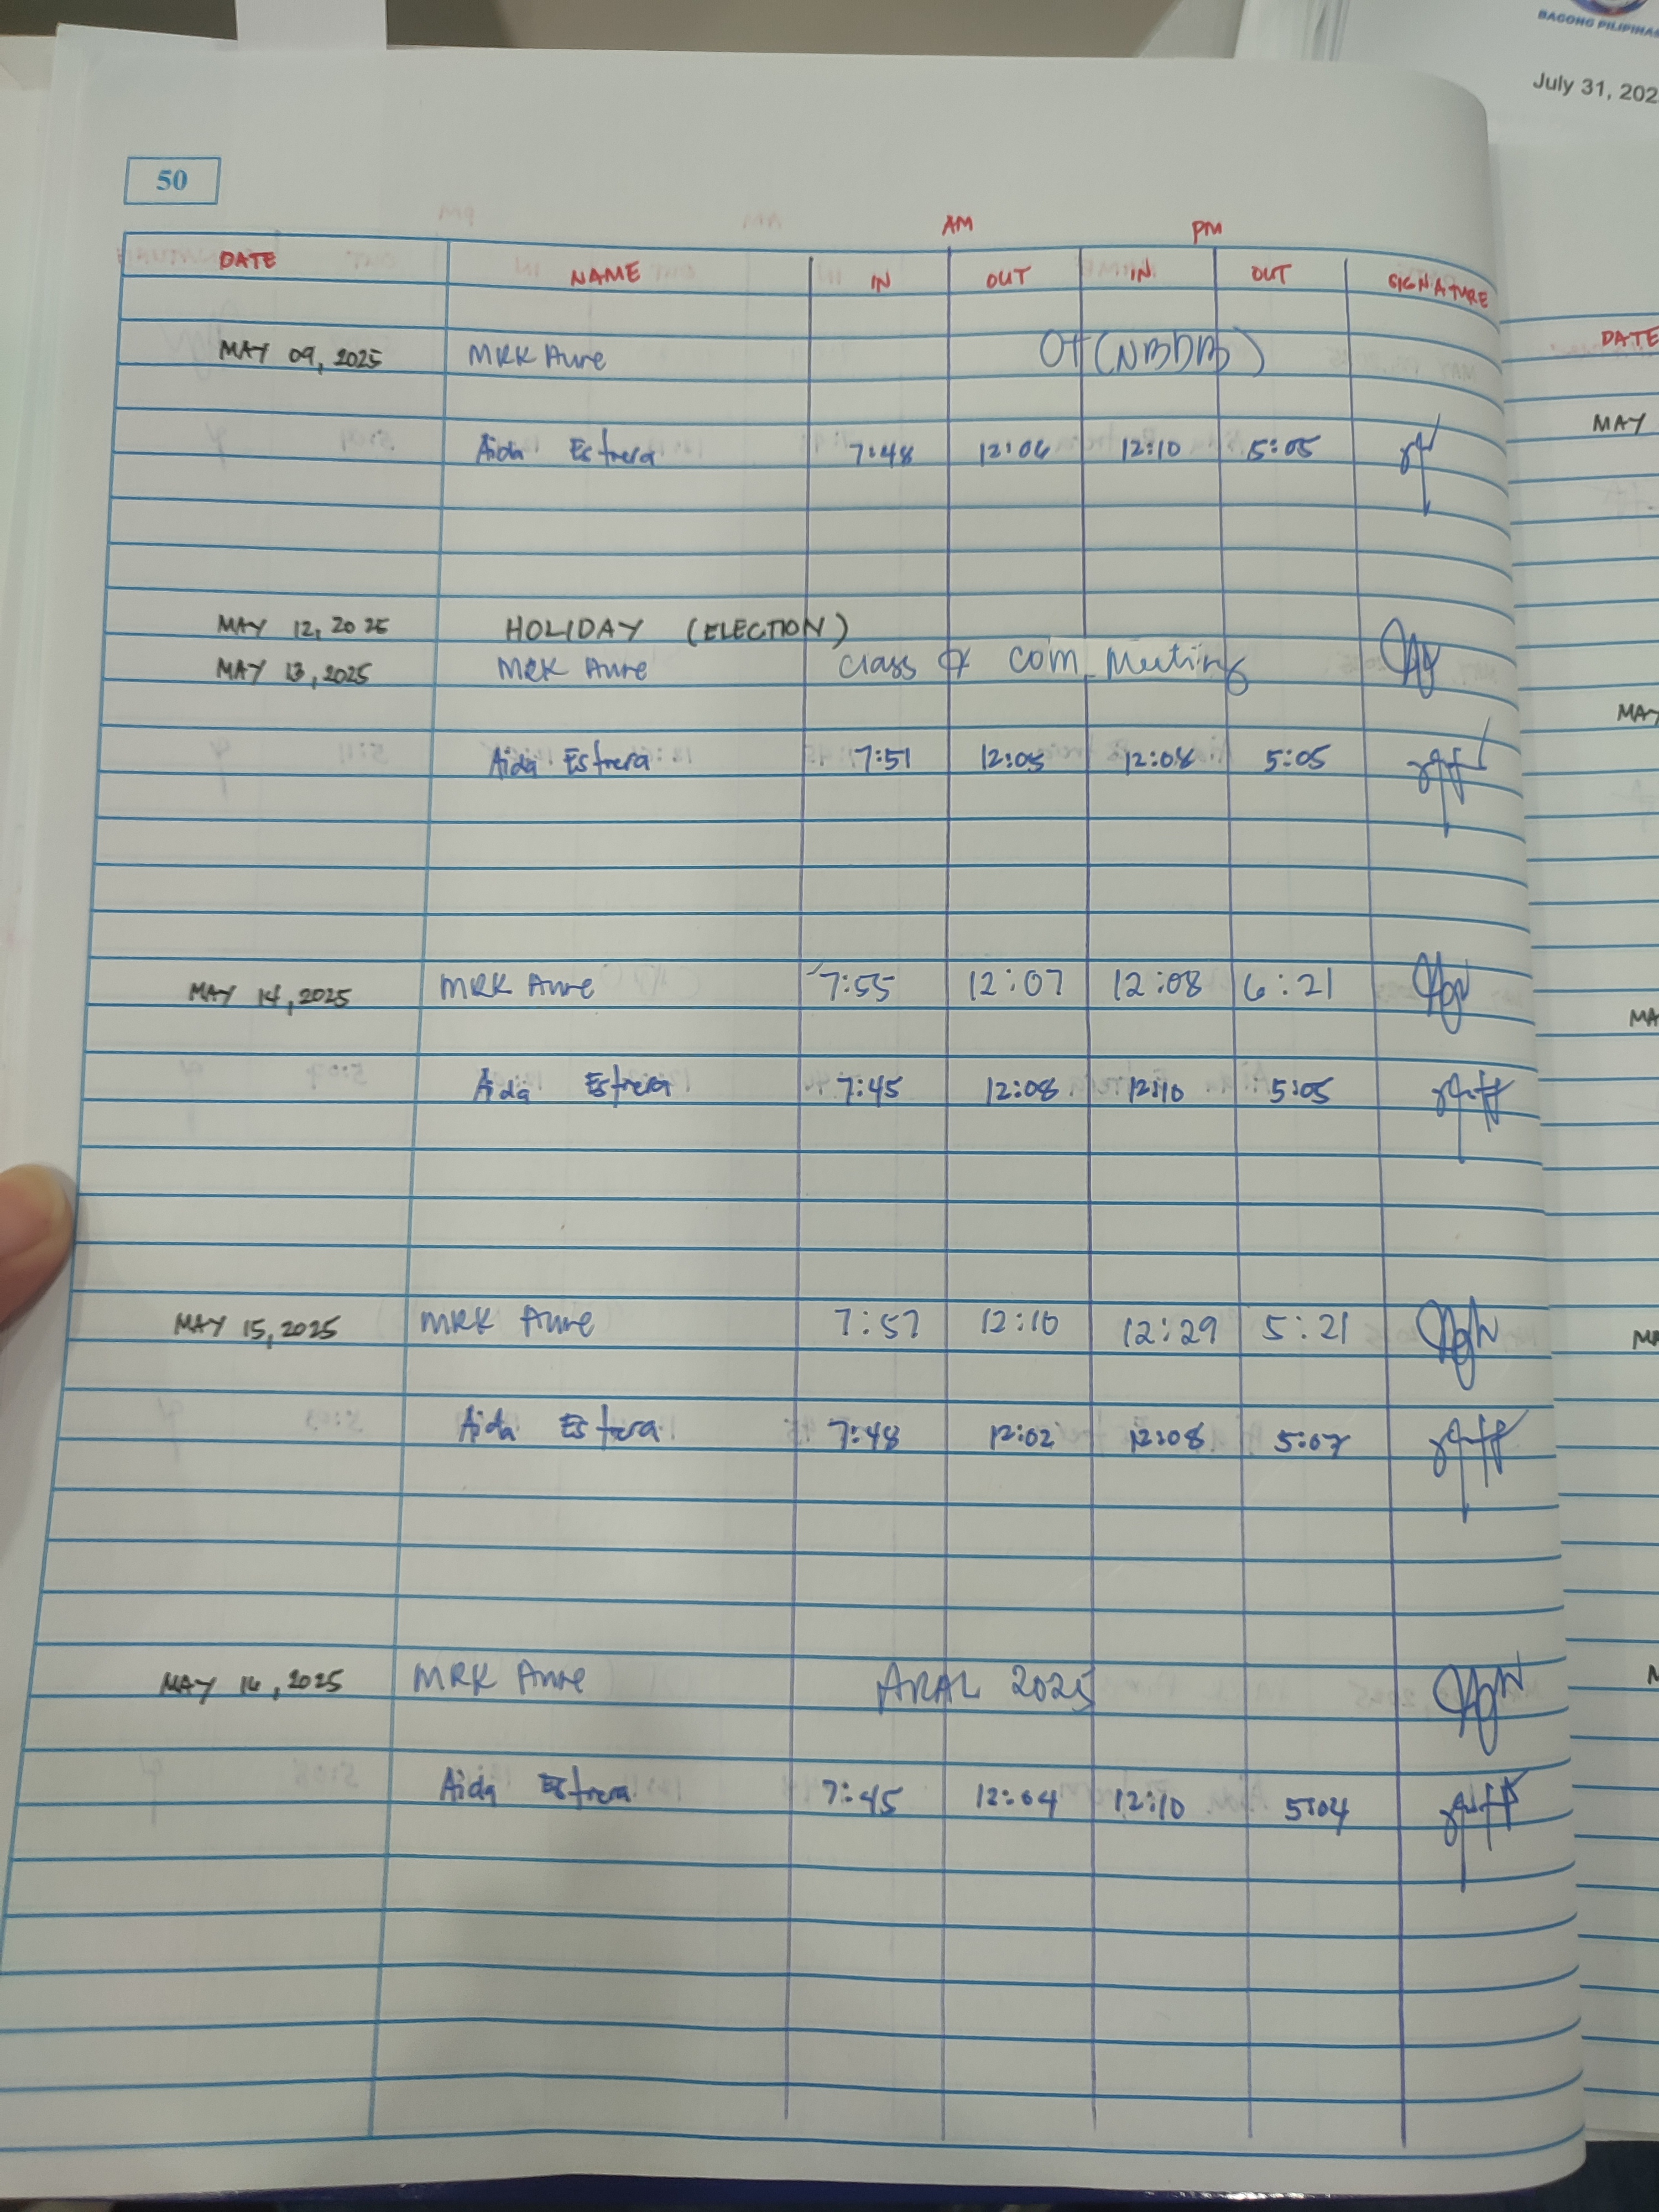 BAGONG PILIPINAS
July 31, 202
50
AM PM
DATE NAME IN OUT IN OUT SIGNATURE
MAY 09, 2025 MRK Aure OT (NBDB)
Aida Estrera 7:48 12:06 12:10 5:05
MAY 12, 2025 HOLIDAY (ELECTION)
MAY 13, 2025 MRK Aure Class & Com Meeting
Aida Estrera 7:51 12:05 12:08 5:05
MAY 14, 2025 MRK Aure 7:55 12:07 12:08 6:21
Aida Estrera 7:45 12:08 12:10 5:05
MAY 15, 2025 MRK Aure 7:57 12:10 12:29 5:21
Aida Estrera 7:48 12:02 12:08 5:07
MAY 16, 2025 MRK Aure ARAL 2025
Aida Estrera 7:45 12:04 12:10 5:04
DATE
MAY
MAY
MA
MA
M